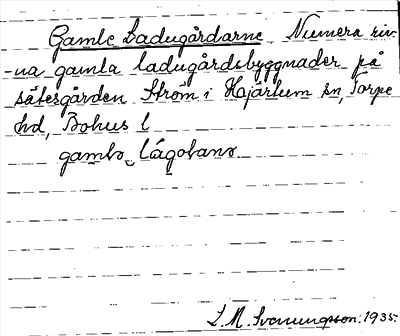 Gamle Ladugårdarne Numera riv-
-na gamla ladugårdsbyggnader på
sätesgården Ström i Hjärtum sn, Torpe
hd, Bohus l
gambɩ
L. M. Svenungsson. 1935.